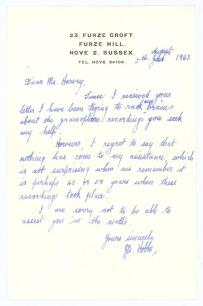 23, FURZE CROFT,
FURZE HILL,
HOVE 2, SUSSEX.
TEL. HOVE 34104.
5th August 1963
Dear Mr. Harvey,
Since I received your
letter I have been trying to rack my brains
about the gramophone recording you seek
my help.
However, I regret to say that
nothing has come to my assistance, which
is not surprising when we remember it
is perhaps 45 or 50 years when these
recordings took place.
I am sorry not to be able to
assist you in the matter.
Yours sincerely
J.B. Hobbs,